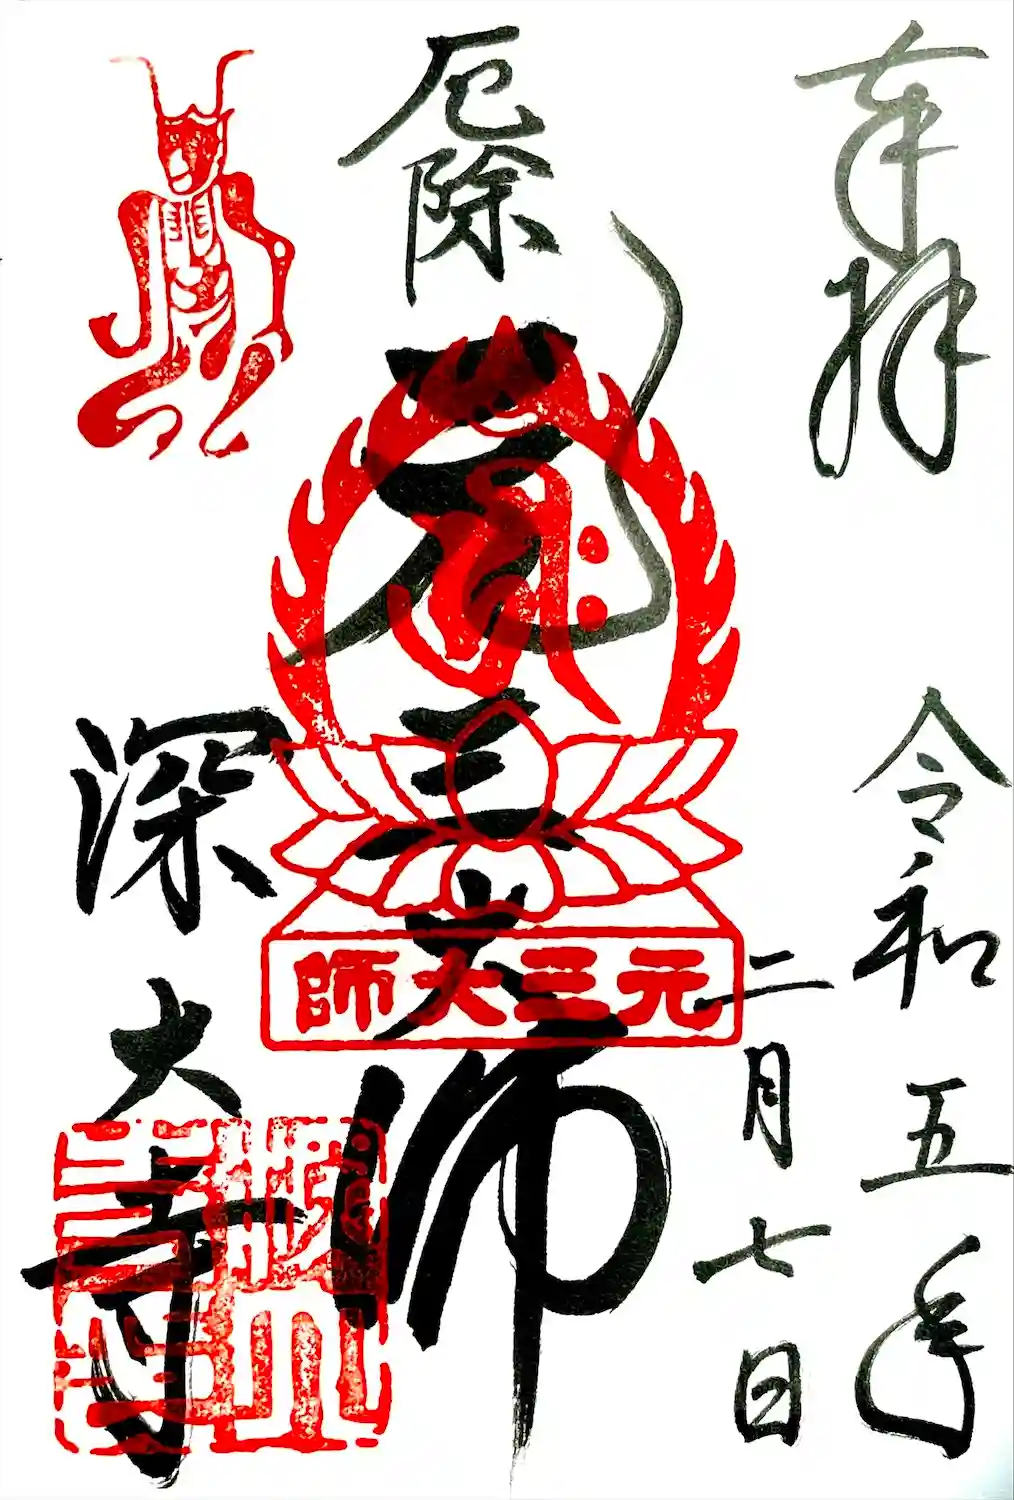 奉拝
令和五年
二月七日
厄除
元三大師
元三大師
深大寺